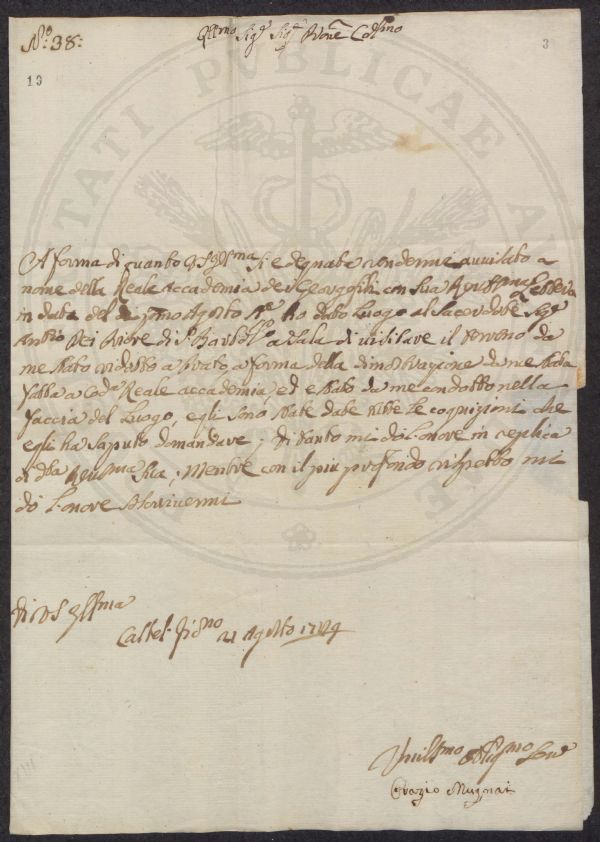 N.° 38:
Ill.mo Sig.r Sig.r P.rone Col.mo
3
13
PROSPERITATI PUBLICAE AUGENDAE
A forma di quanto V.S. Ill.ma si è degnata rendermi avvisato a
nome della Reale Accademia dei Georgofili con Sua
in data del dì Agosto ho dato luogo al Sacerdote Sig.r
Ant.io Dei Priore di S. Bartol.o a Sala di visitare il terreno da
me stato ridotto a Prato a forma della dimostrazione da me stata
fatta a Cod.a Reale Accademia, ed è stato da me condotto nella
faccia del Luogo, e gli sono state date tutte le cognizioni che
egli ha saputo domandare. Di tanto mi do l'onore in replica
di d.ta Sua; Mentre con il più profondo rispetto mi
do l'onore di soscrivermi
Di V.S. Ill.ma
Castel 21 Agosto 1784
Umil.mo Obblig.mo Serv.e
Orazio Mugnai